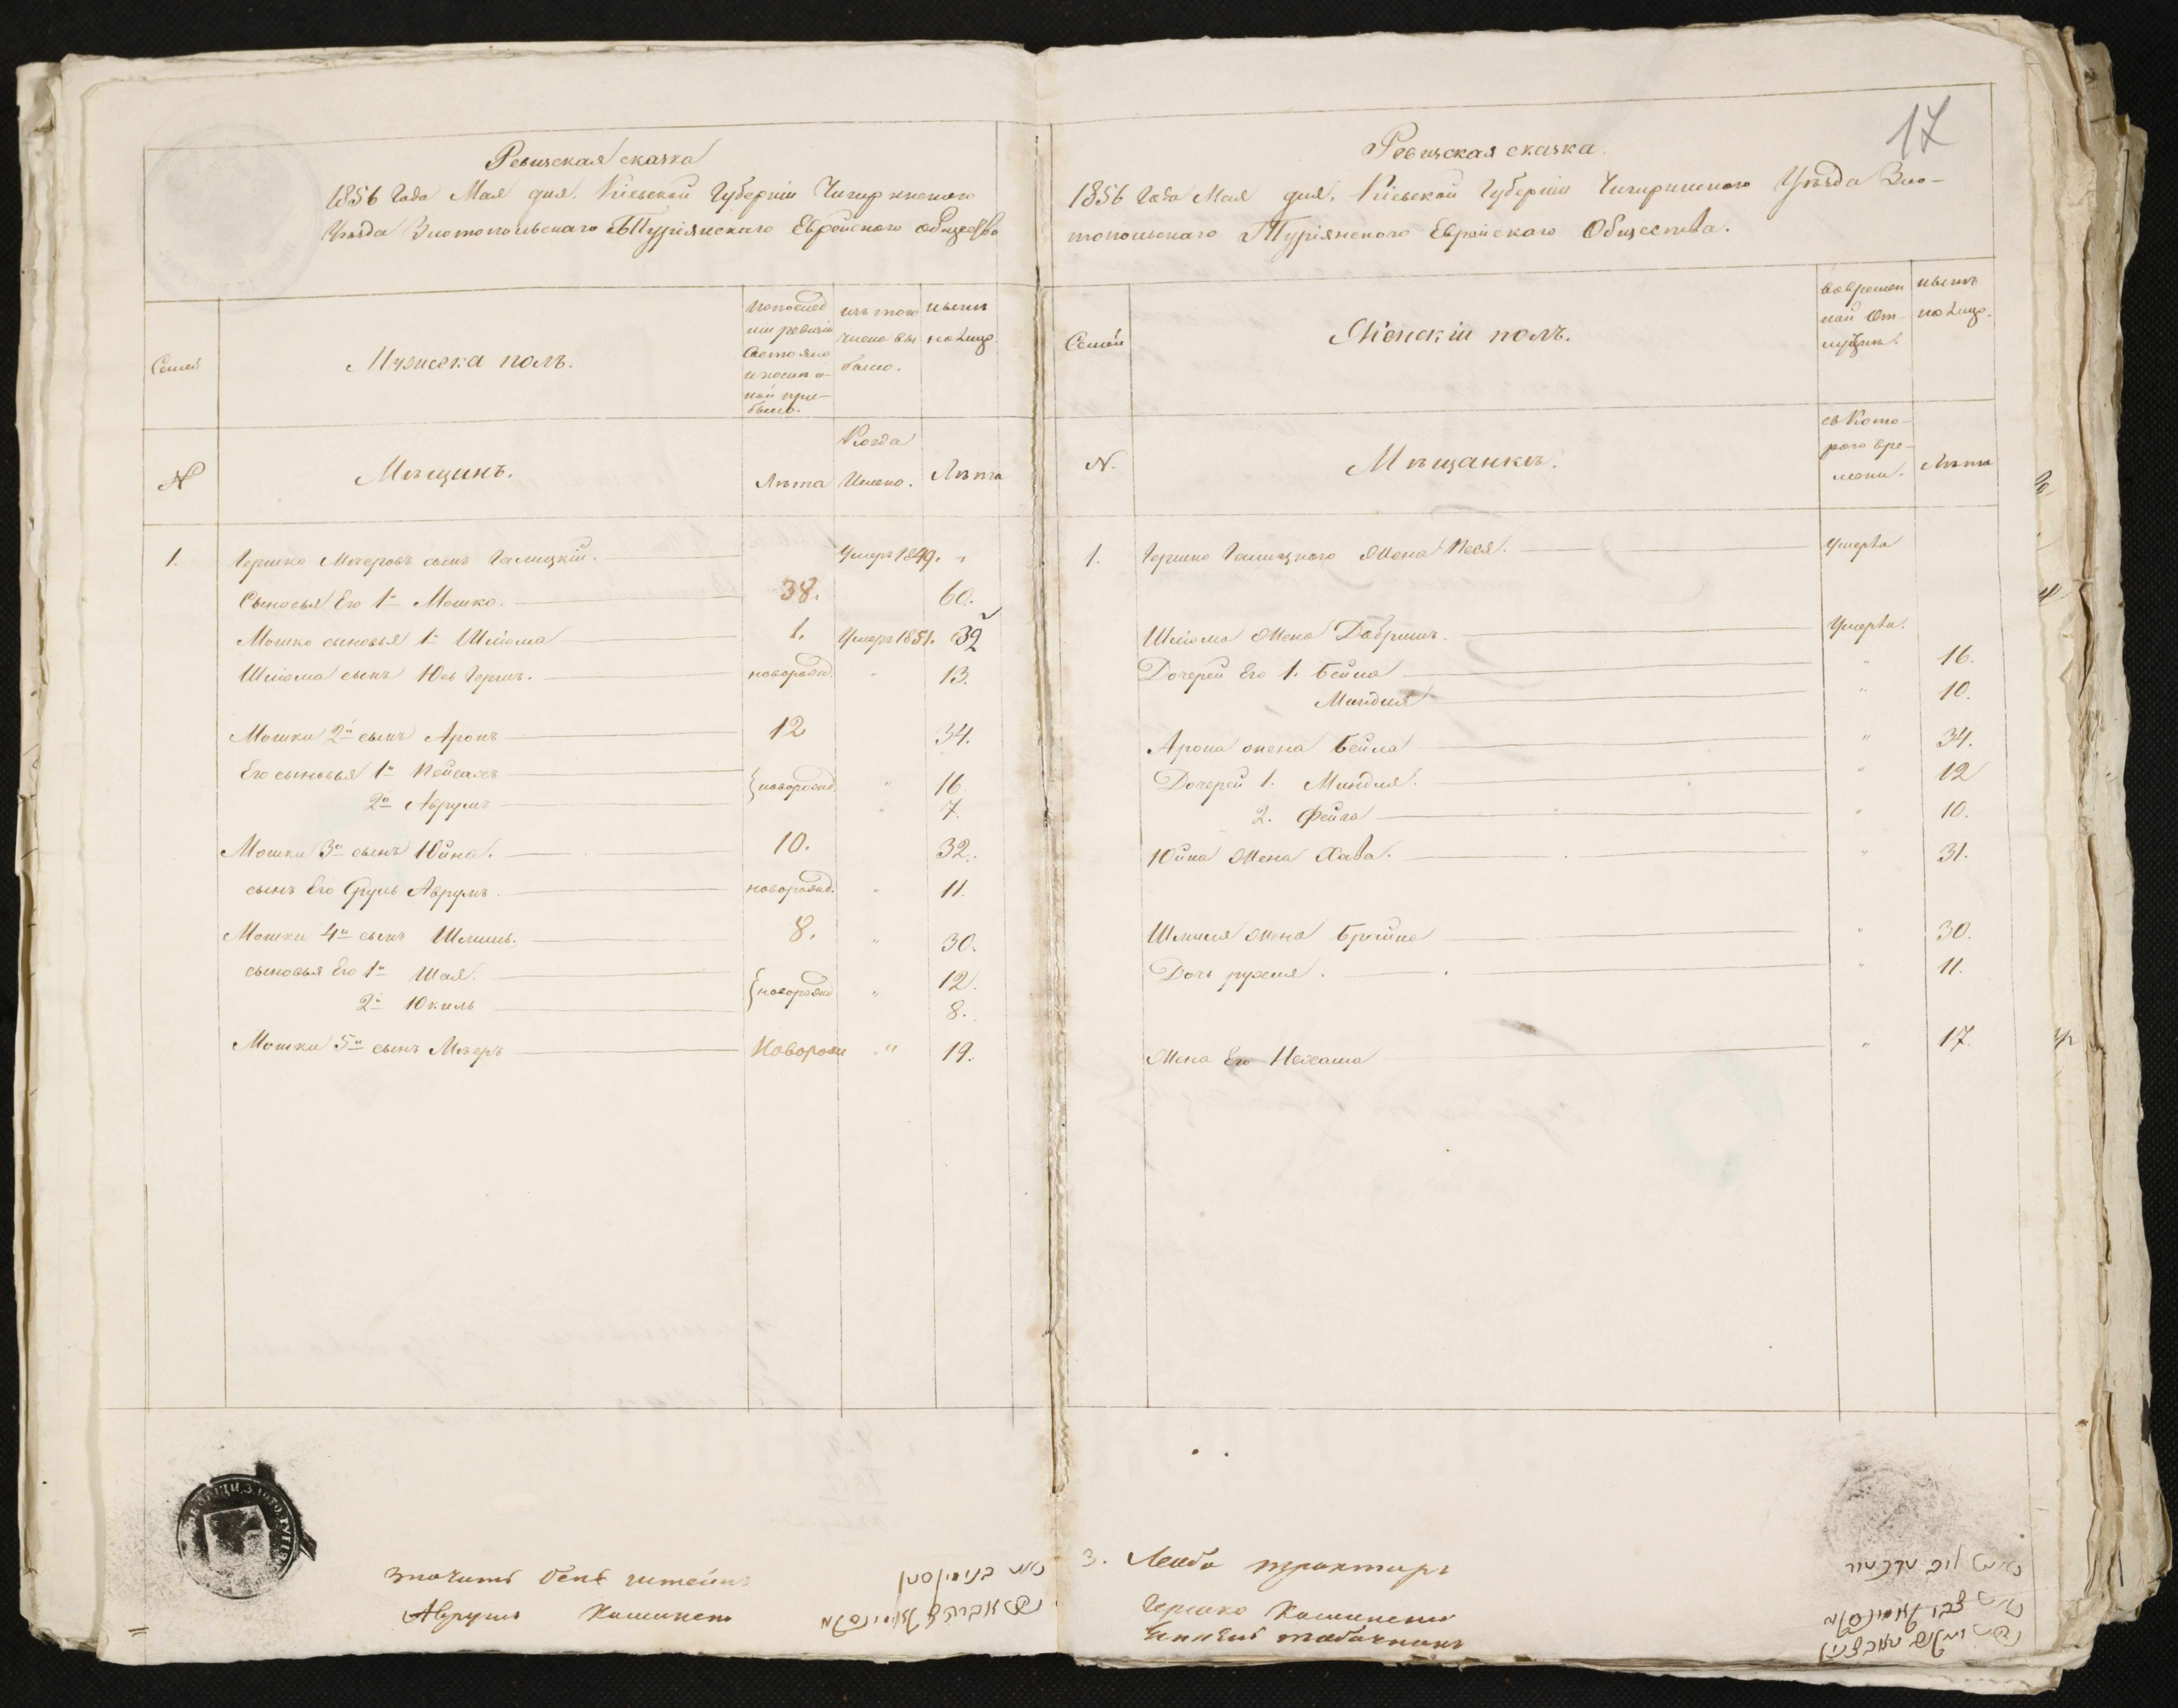 Ревизская сказка
1856 Года Мая дня. Кіевской Губерніи Чигиринскаго
Уѣзда Златопольскаго Туріянскаго Еврейскаго Общества
Семей
Мужеска полъ.
По последней ревизіи состояло и после оной прибыло.
изъ того числа выбыло.
нынѣ на лицо
N
Мѣщинъ.
Лѣта
Когда Имено.
Лѣта
1. Гершко Мееровъ сынъ Галицкій. Умеръ 1849. "
Сыновья Его 1й Мошко. 38. 60.
Мошко сыновья 1й Шлiома 1. Умеръ 1851. 32
Шлiома сынъ Юсь Гершъ. новорожд. " 13.
Мошки 2й сынъ Аронъ 12 34.
Его сыновья 1й Пейсахъ новорожд " 16.
2й Аврумъ " 7.
Мошки 3й сынъ Юйна. 10. 32.
сынъ Его Сруль Аврумъ. новорожд. " 11.
Мошки 4й сынъ Шмиль. 8. " 30.
сыновья Его 1й Шая. новорожд " 12.
2й Юкиль 8.
Мошки 5й сынъ Мееръ Новорожд " 19.
Значитъ
Аврумъ
17
Ревизская сказка.
1856 Года Мая дня. Кіевской Губерніи Чигиринскаго Уѣзда Зло-
топольскаго Туріянскаго Еврейскаго Общества.
Семей
Женскій полъ.
во временной отлучки.
нынѣ на лицо.
N.
Мѣщанкъ.
съ Которого времени.
Лѣта
1. Гершко Галицкого Жена Песя. Умерла
Шлiома Жена Добришъ. Умерла.
Дочерей Его 1. Бейла " 16.
Миндля " 10.
Арона жена Бейла " 34.
Дочерей 1. Миндля. " 12
2. Фейга " 10.
Юйна Жена Хава. " 31.
Шмиля Жена Брайна " 30.
Дочь рухля. " 11.
Жена Его Нехама " 17.
3. Лейба трактиръ
Гершко